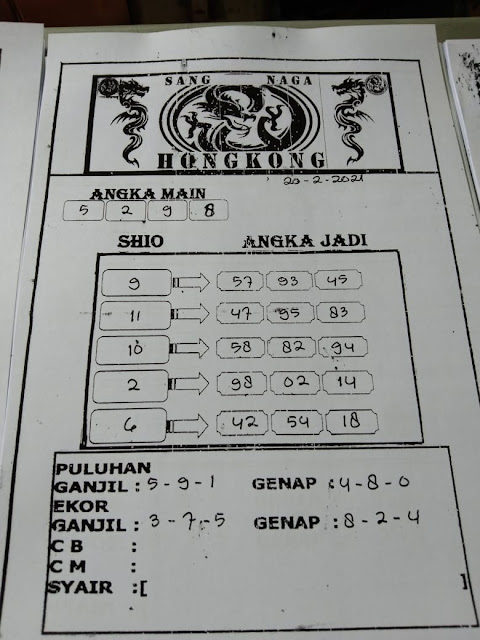 SANG NAGA
HONGKONG
20-2-2021
ANGKA MAIN
5 2 9 8
SHIO ANGKA JADI
9 57 93 45
11 47 95 83
10 58 82 94
2 98 02 14
6 42 54 18
PULUHAN
GANJIL : 5-9-1 GENAP : 4-8-0
EKOR
GANJIL : 3-7-5 GENAP : 8-2-4
C B :
C M :
SYAIR :[ ]